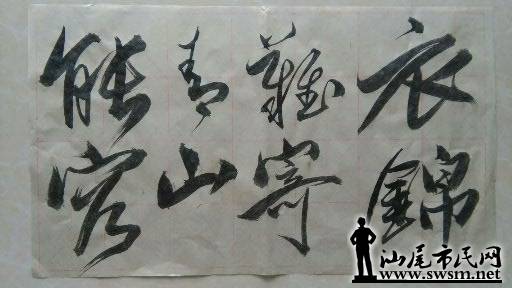 衣錦
難寄
青山
能容
汕尾市民网
www.swsm.net